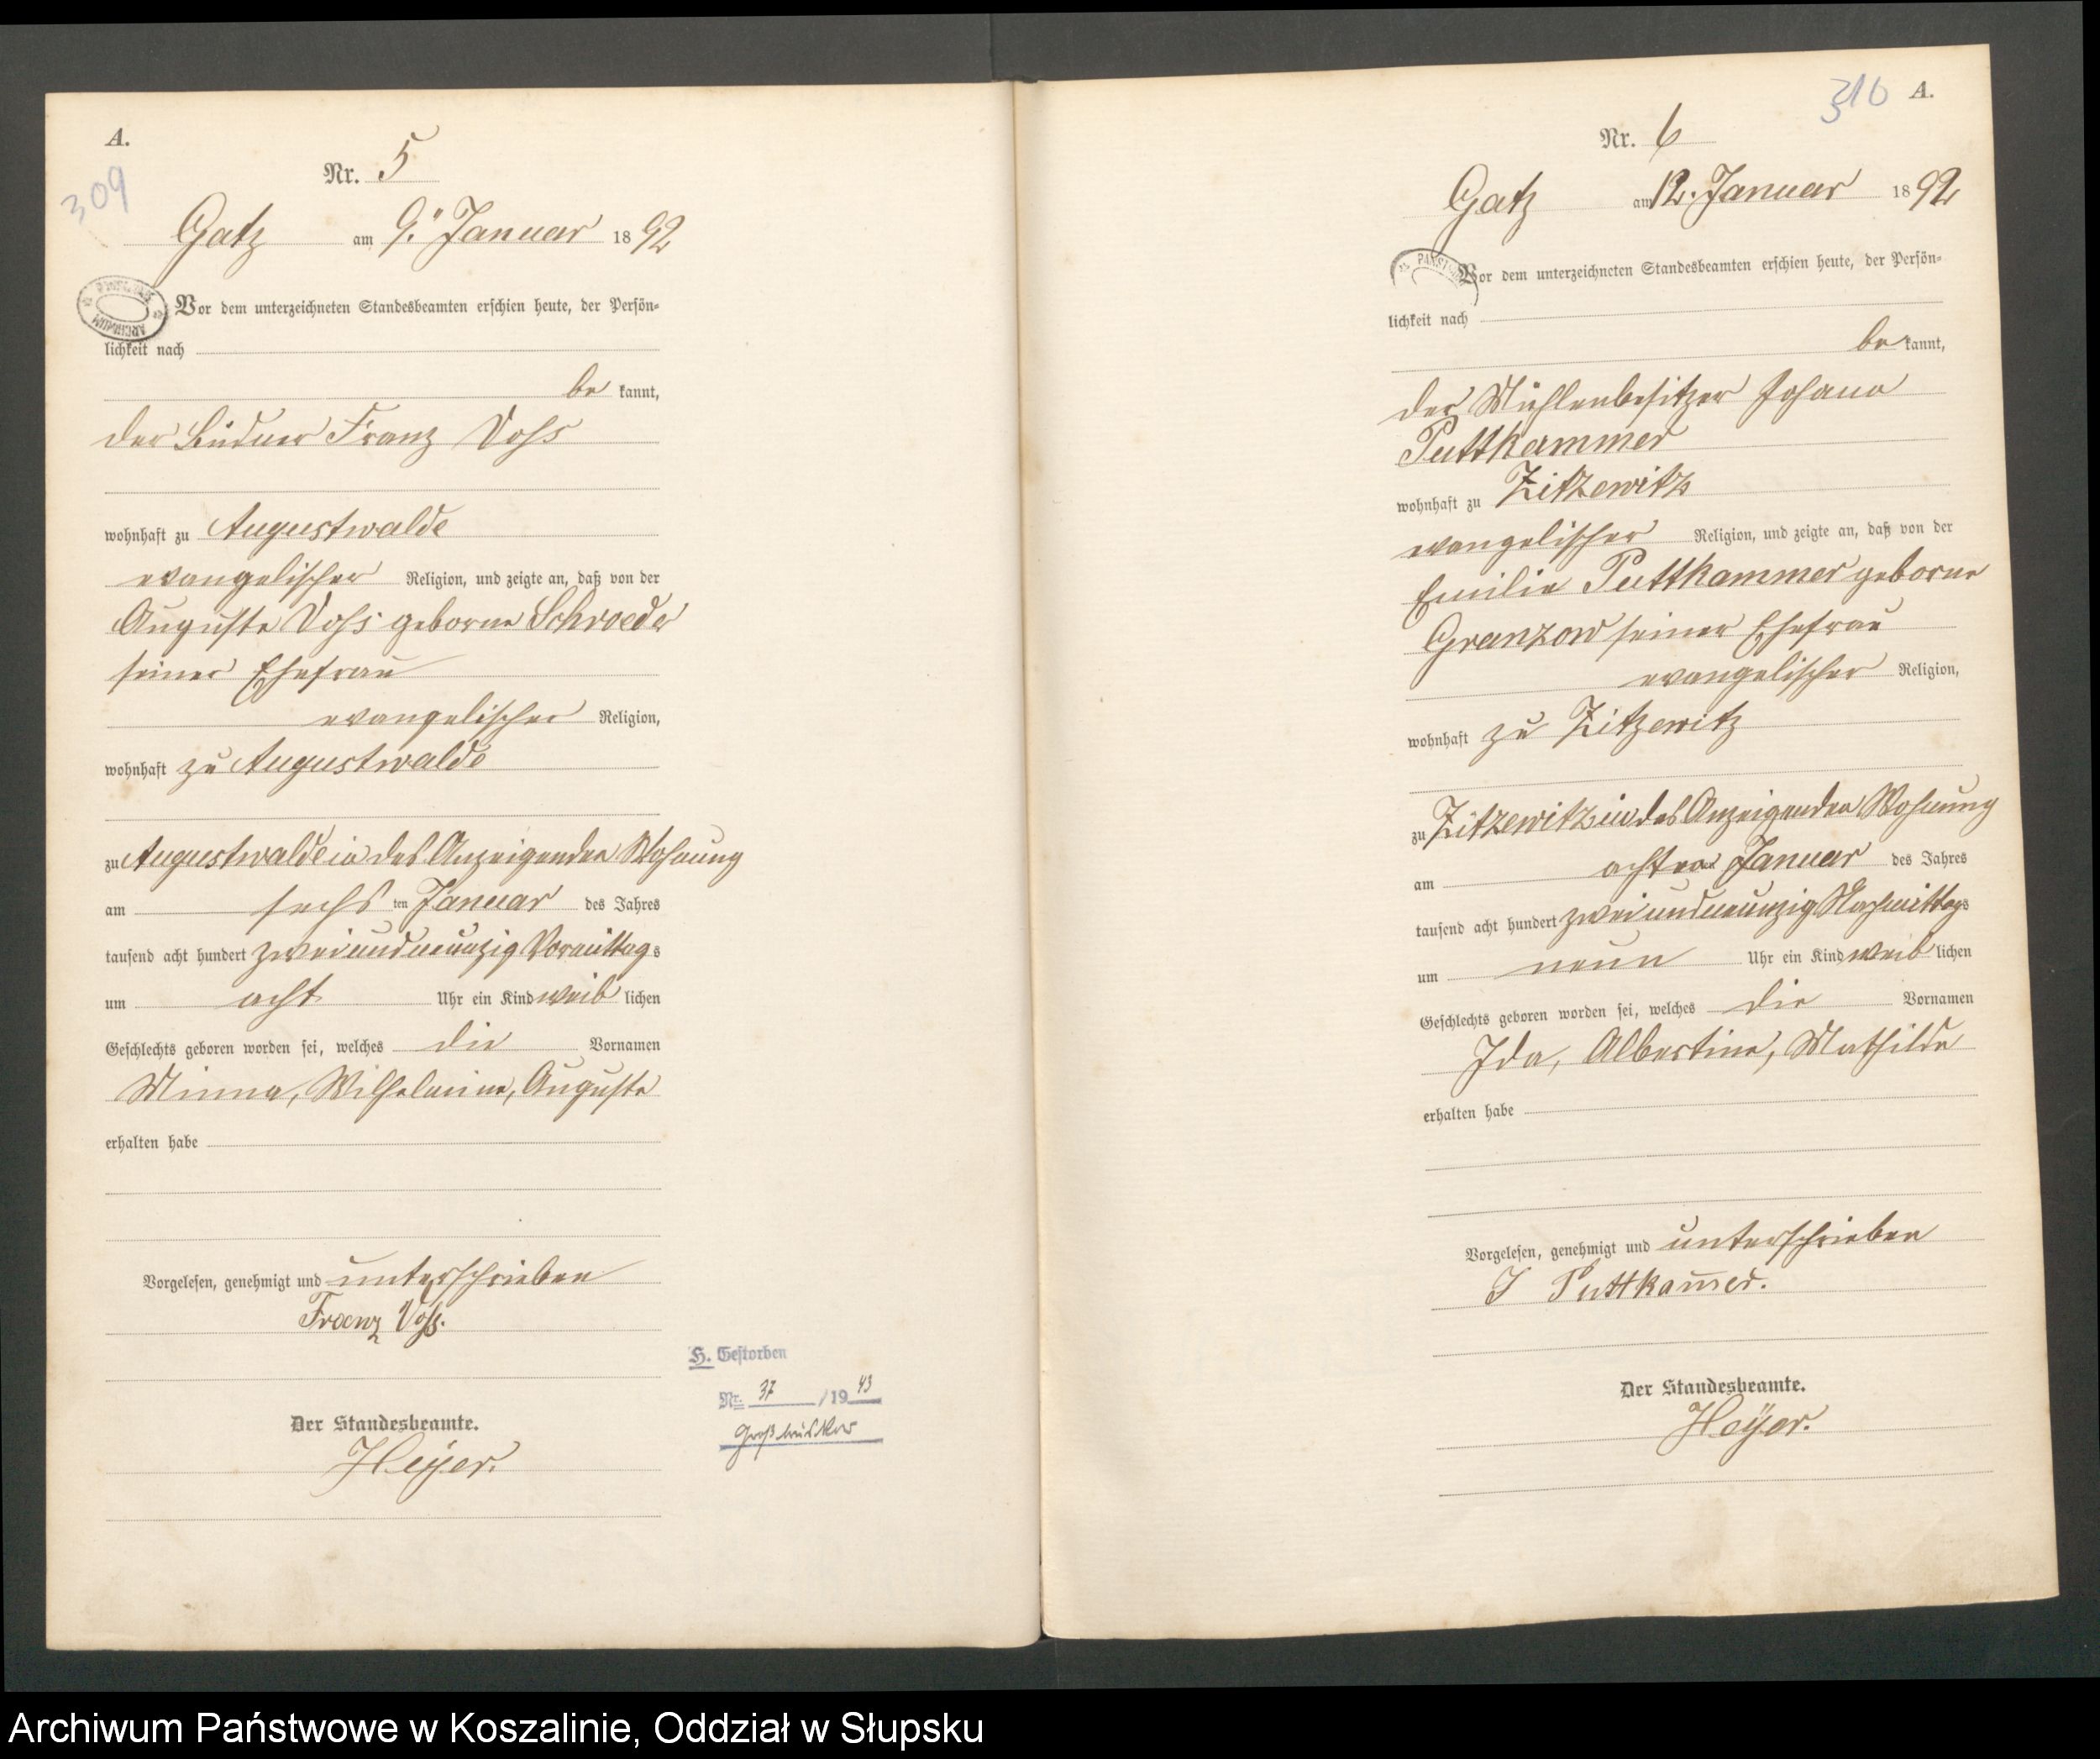 A.
309
Nr. 5
Gatz am 9. Januar 1892
Vor dem unterzeichneten Standesbeamten erschien heute, der Persön=
lichkeit nach
be kannt,
der Büdner Franz Voss
wohnhaft zu Augustwalde
evangelischer Religion, und zeigte an, daß von der
Auguste Voss geborne Schroeder
seiner Ehefrau
evangelischer Religion,
wohnhaft zu Augustwalde
zu Augustwalde in des Anzeigenden Wohnung
am sechs ten Januar des Jahres
tausend acht hundert zweiundneunzig Vormittags
um acht Uhr ein Kind weib lichen
Geschlechts geboren worden sei, welches die Vornamen
Minna, Wilhelmine, Auguste
erhalten habe
Vorgelesen, genehmigt und unterschrieben
Franz Voß.
Der Standesbeamte.
Heyer.
H. Gestorben
Nr. 37/1943
310 A.
Nr. 6
Gatz am 12. Januar 1892
Vor dem unterzeichneten Standesbeamten erschien heute, der Persön=
lichkeit nach
be kannt,
der Mühlenbesitzer Johann
Puttkammer
wohnhaft zu Zitzewitz
evangelischer Religion, und zeigte an, daß von der
Emilie Puttkammer geborne
Granzow seiner Ehefrau
evangelischer Religion,
wohnhaft zu Zitzewitz
zu Zitzewitz in des Anzeigenden Wohnung
am achten Januar des Jahres
tausend acht hundert zweiundneunzig Nachmittags
um neun Uhr ein Kind weib lichen
Geschlechts geboren worden sei, welches die Vornamen
Ida, Albertine, Mathilde
erhalten habe
Vorgelesen, genehmigt und unterschrieben
J Puttkam̅er.
Der Standesbeamte.
Heyer.
Archiwum Państwowe w Koszalinie, Oddział w Słupsku